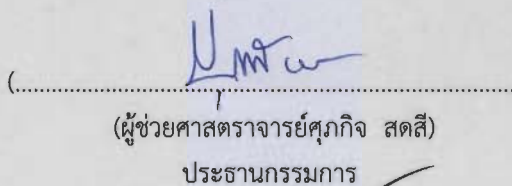 (....................................................................
(ผู้ช่วยศาสตราจารย์ศุภกิจ สดสี)
ประธานกรรมการ